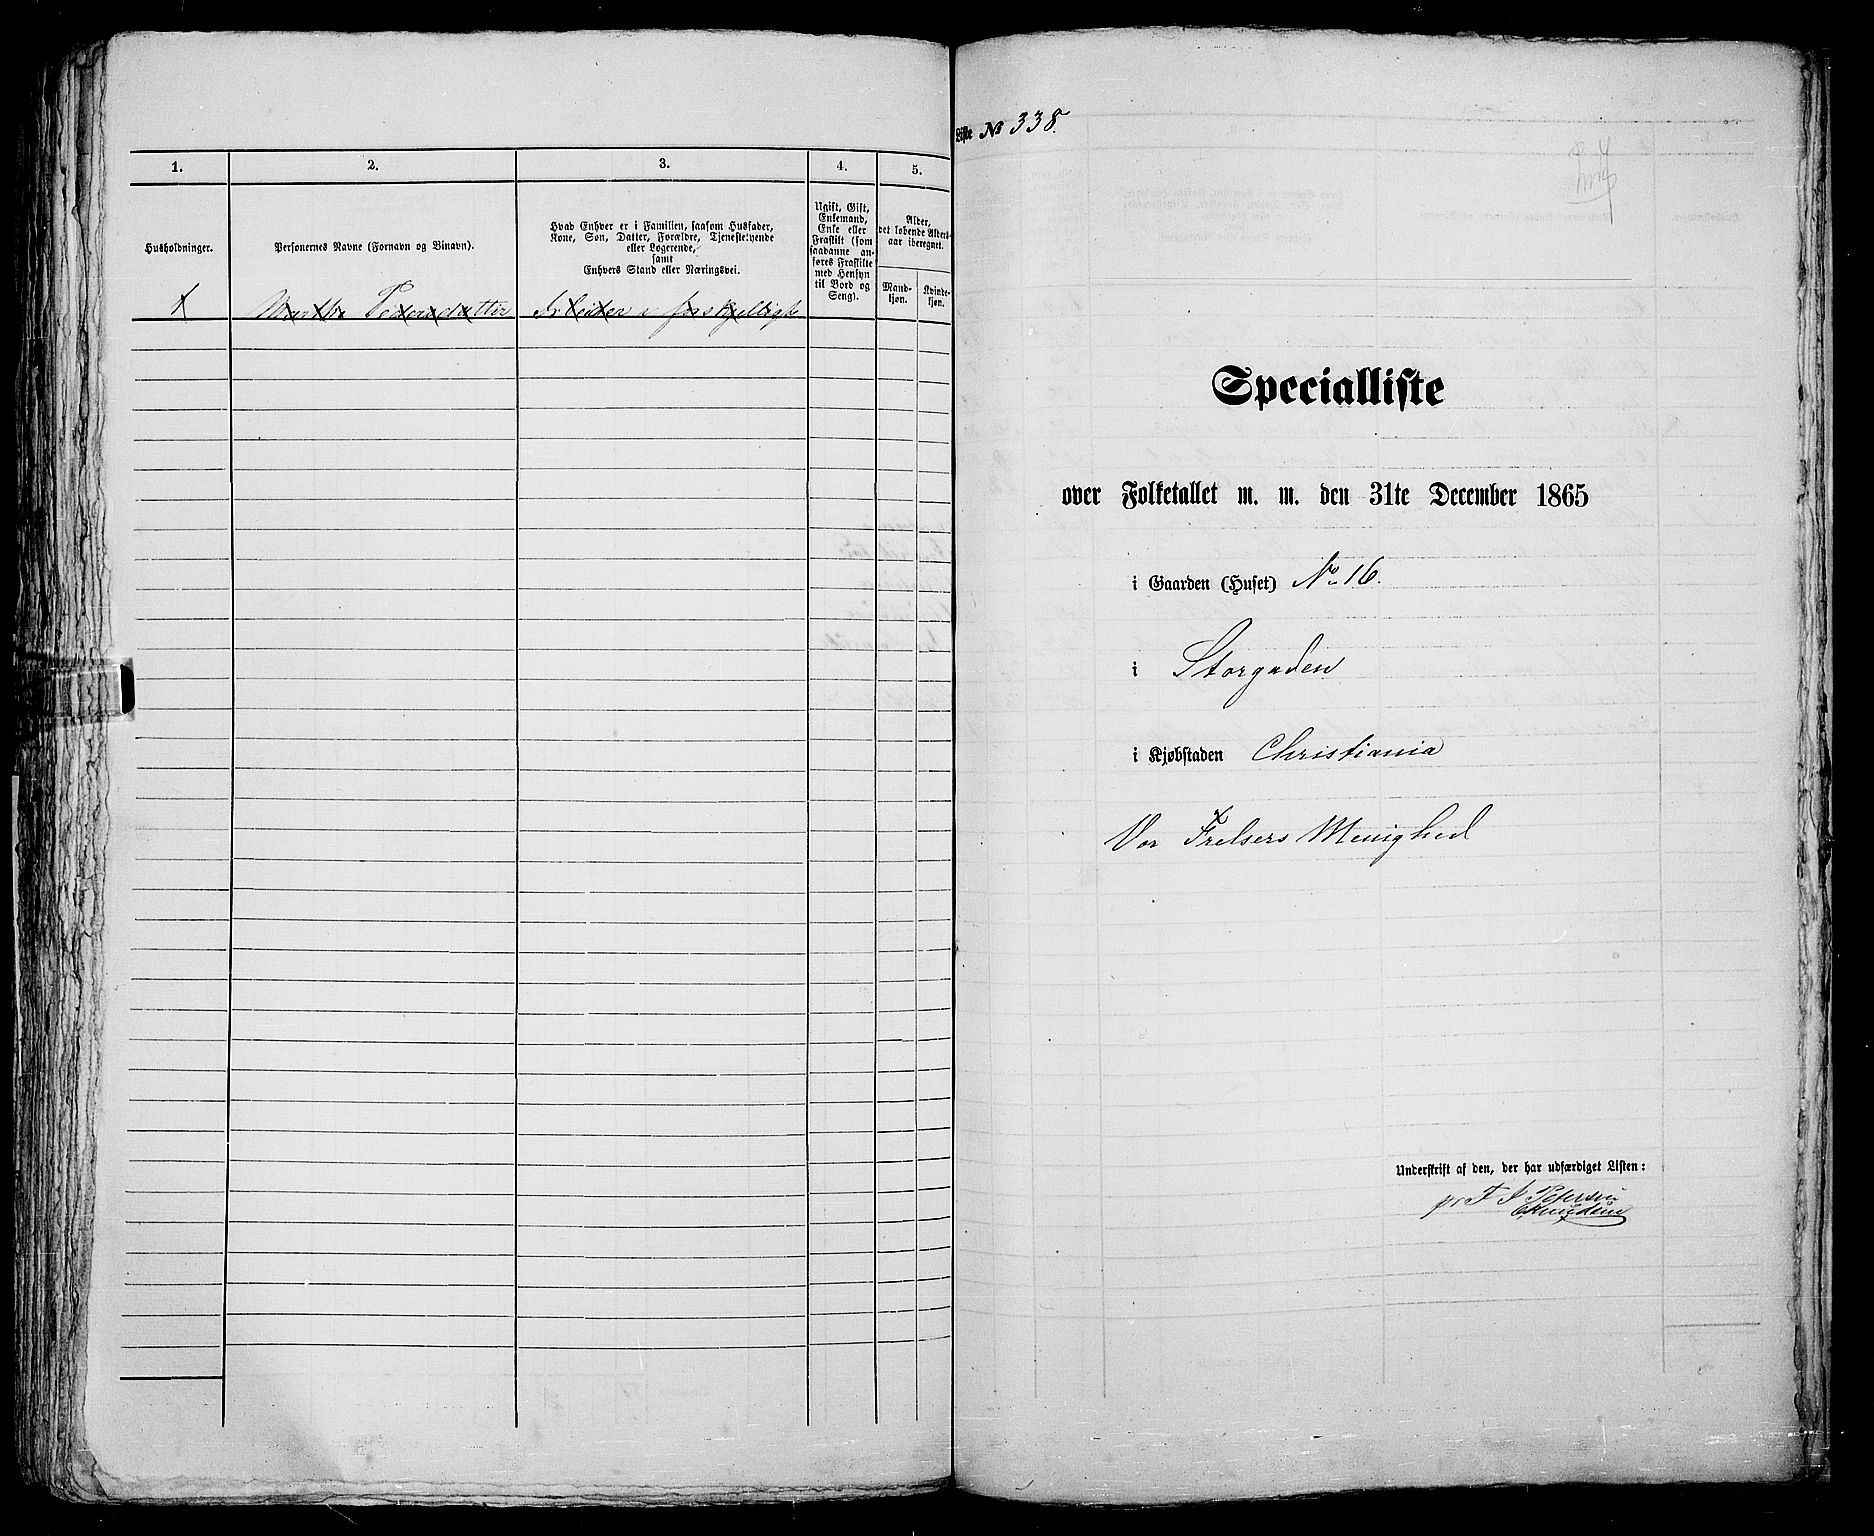 1. 2. 3. 4. 5.
Husholdninger.
Personernes Navne (Fornavn og Binavn).
Hvad Enhver er i Familien, saasom Husfader,
Kone, Søn, Datter, Forældre, Tjenestetyende
eller Logerende,
samt
Enhvers Stand eller Næringsvei.
Ugift, Gift,
Enkemand,
Enke eller
Fraskilt (som
saadanne an-
føres Fraskilte
med Hensyn
til Bord og
Seng).
Alder,
det løbende Alders-
aar iberegnet.
Mand-
kjøn.
Kvinde-
kjøn.
1 Martha Pedersdatter Arbeider i forskjelligt
Liste No 338.
Specialliste
over Folketallet m. m. den 31te December 1865
i Gaarden (Huset) No 16.
i Storgaden
i Kjøbstaden Christiania
Vor Frelsers Menighed
Underskrift af den, der har udfærdiget Listen:
pr F J Petersen